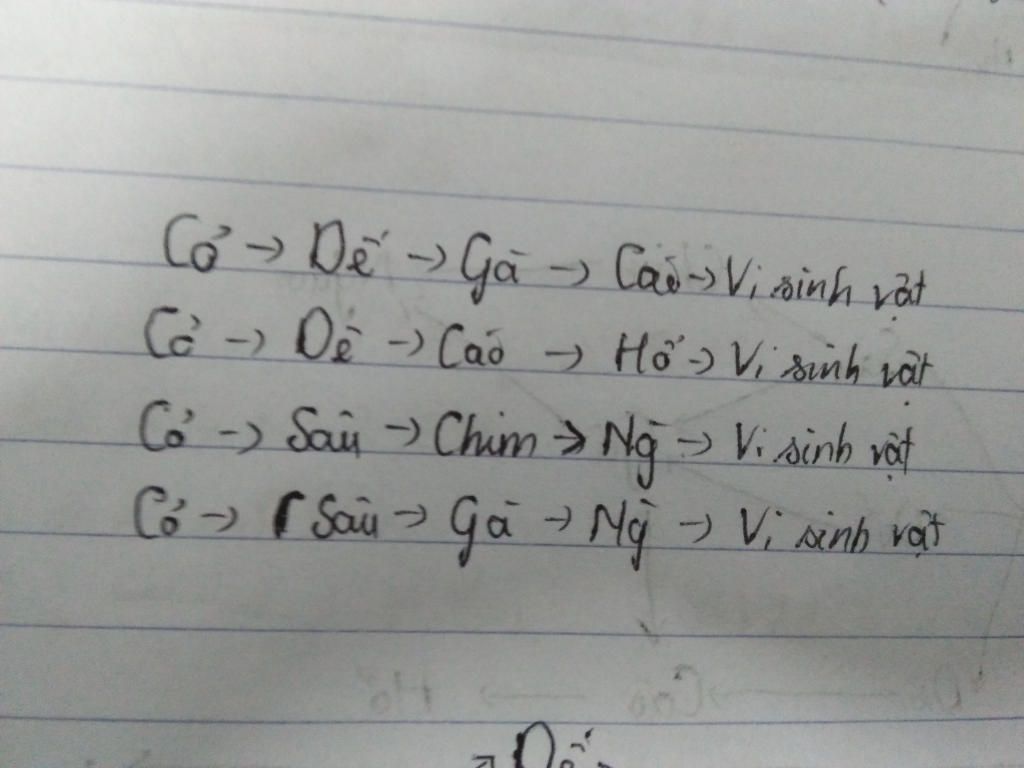 Cỏ → Dế → Gà → Cáo → Vi sinh vật
Cỏ → Dê → Cáo → Hổ → Vi sinh vật
Cỏ → Sâu → Chim → Ng → Vi sinh vật
Cỏ → Sâu → Gà → Ng → Vi sinh vật
Dế